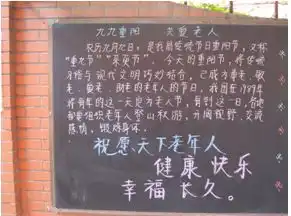 九九重阳 关爱老人
农历九月九日,是我国传统节日重阳节,又称
"重九节""茱萸节"。今天的重阳节,将传统
习俗与现代文明巧妙结合,已成为尊老、敬
老、爱老、助老的老年人的节日,我国在1989年
将每年的这一天定为老人节,每到这一日,各地
都要组织老年人登山秋游,开阔视野、交流
感情,锻炼身体。
祝愿天下老年人
健康 快乐
幸福 长久。